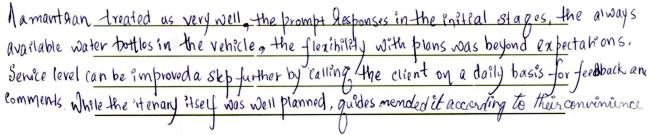 Namanthan treated us very well, the prompt Responses in the initial stages, the always
available water bottles in the vehicle, the flexibility with plans was beyond expectations.
Service level can be improved a step further by calling the client on a daily basis for feedback an
comments. While the itenary itself was well planned, guides mended it according to their convinience